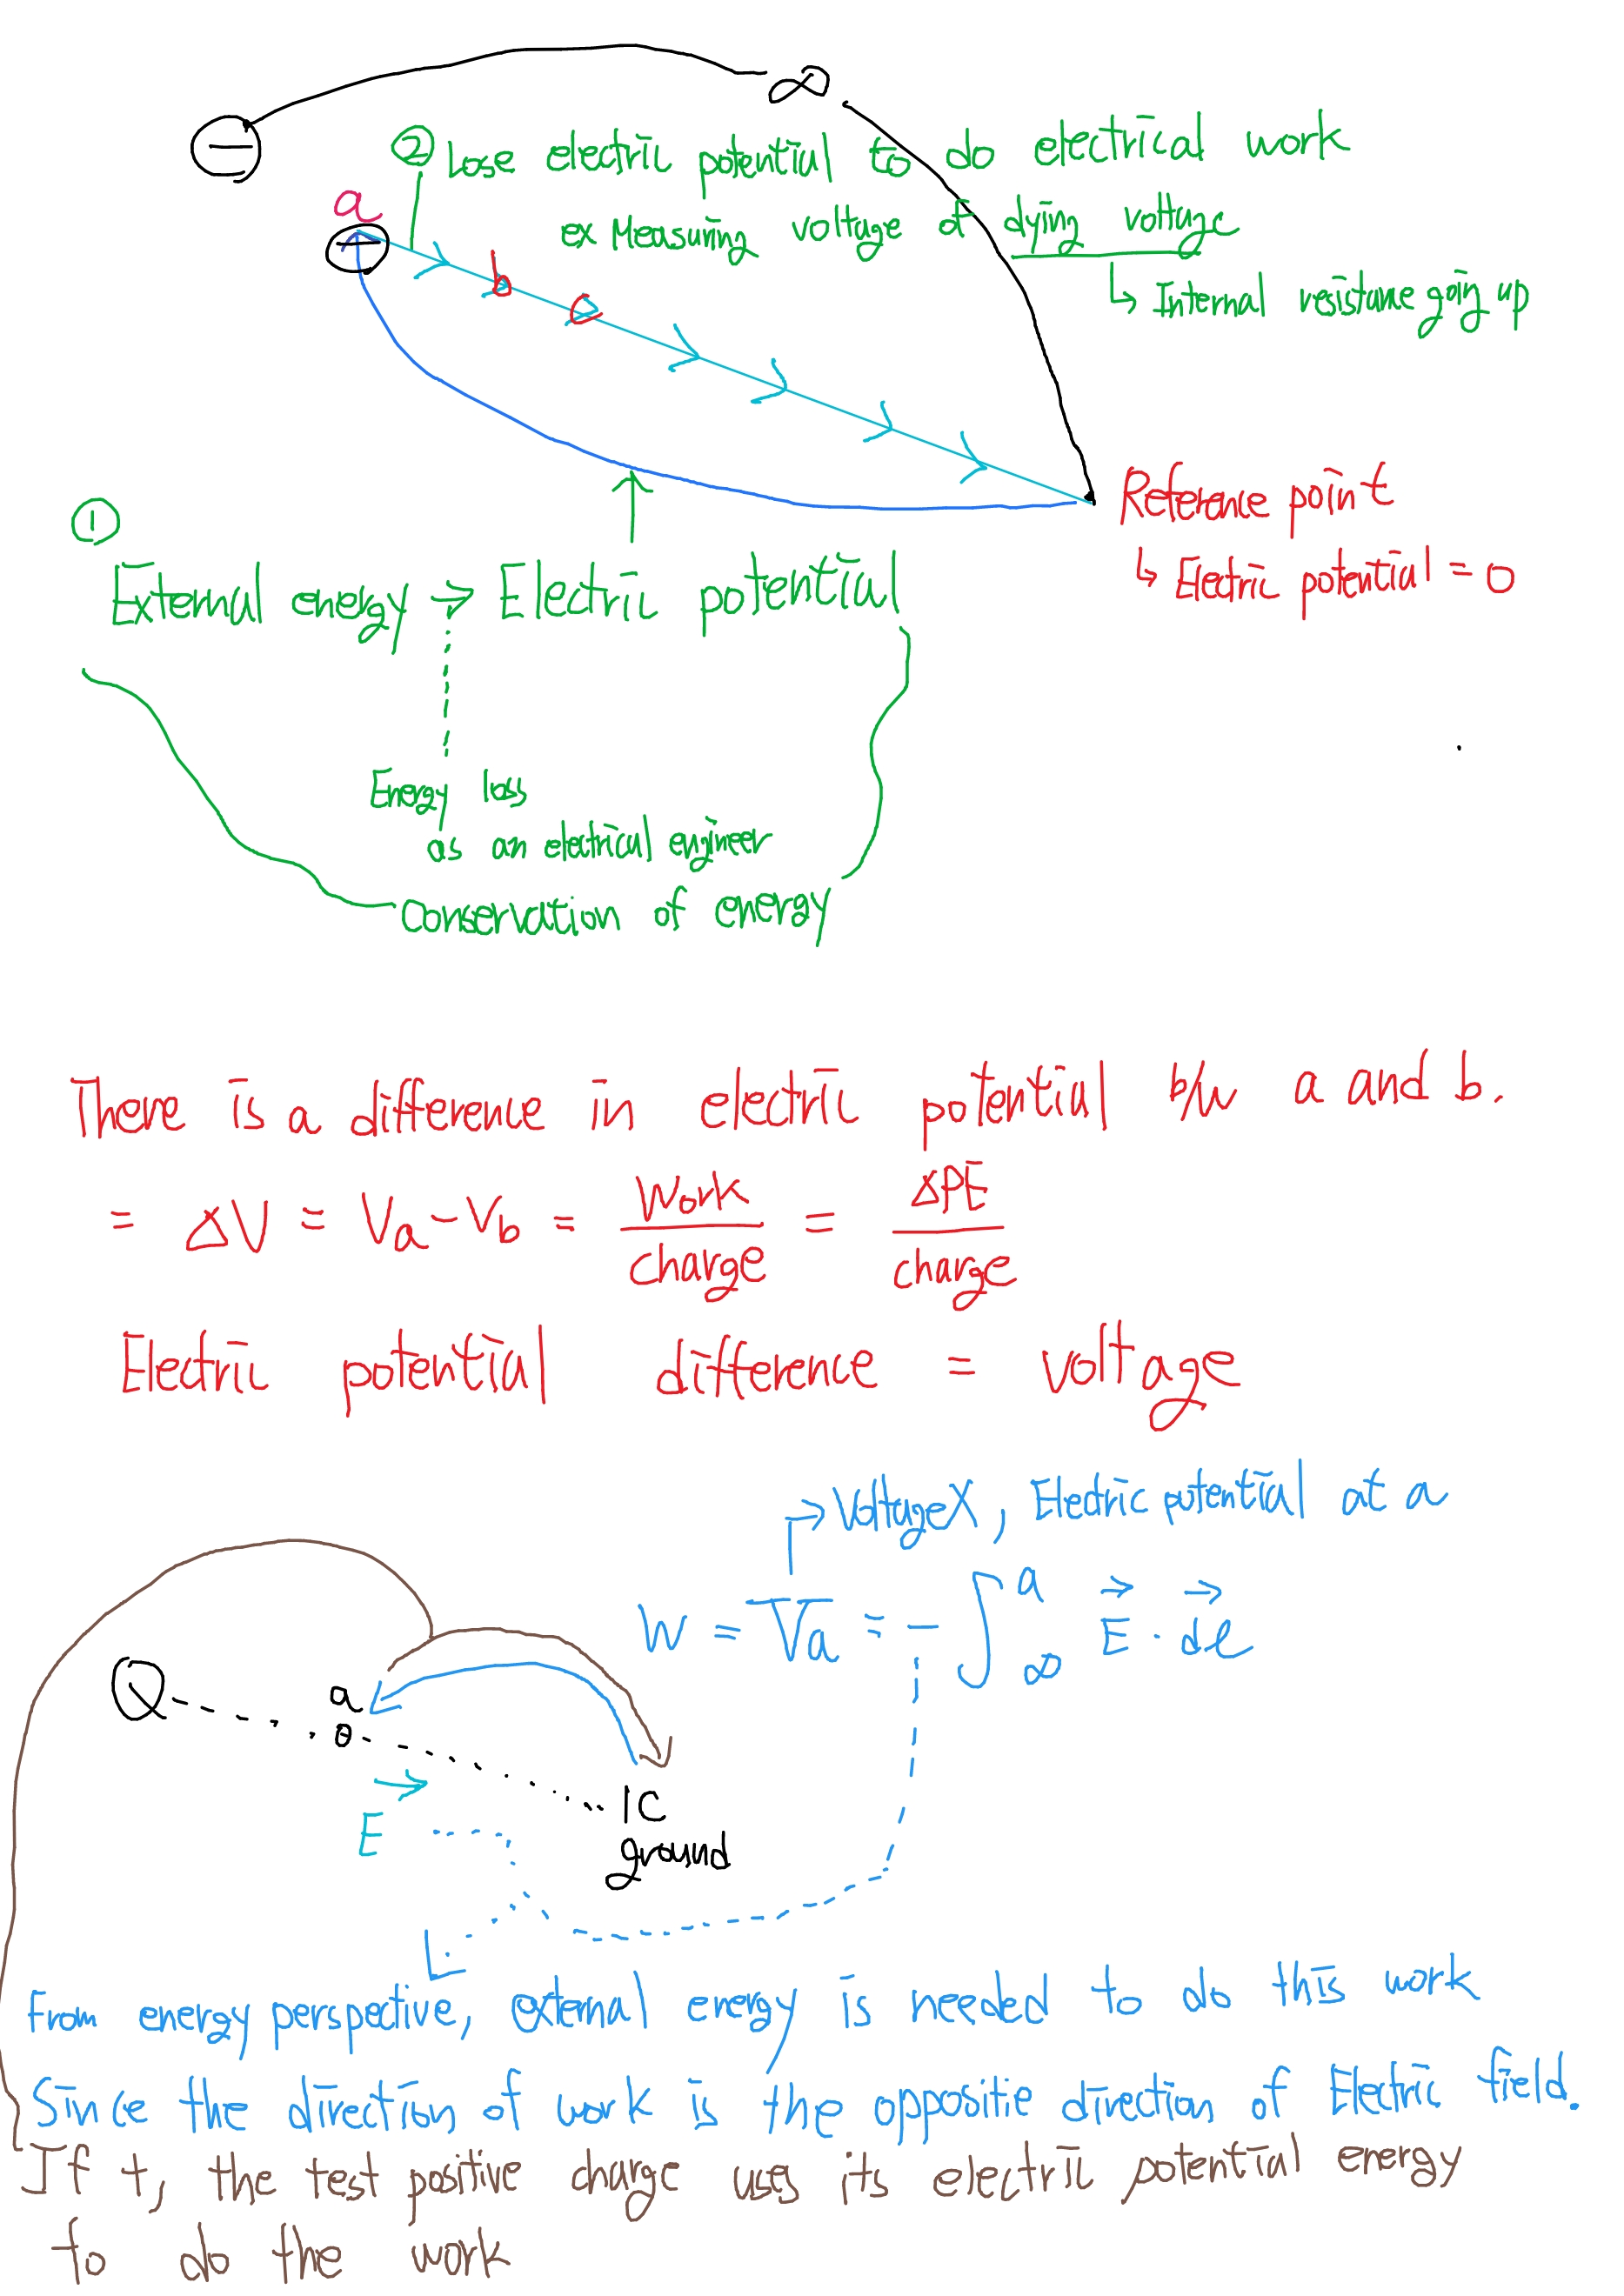 ∞
−
② Lose electric potential to do electrical work
a
ex Measuring voltage of dying voltage
b
↳ Internal resistance going up
c
Reference point
①
External energy → Electric potential
↳ Electric potential = 0
Energy loss
as an electrical engineer
conservation of energy
There is a difference in electric potential b/w a and b.
= ΔV = Va − Vb = Work/charge = ΔPE/charge
Electric potential difference = voltage
→ Voltage X, Electric potential at a
W = Va = − ∫∞^a E⃗ · dℓ⃗
Q
a
1C
E
ground
From energy perspective, external energy is needed to do this work
Since the direction of work is the oppositie direction of Electric field.
If +, the test positive charge uses its electric potential energy
to do the work